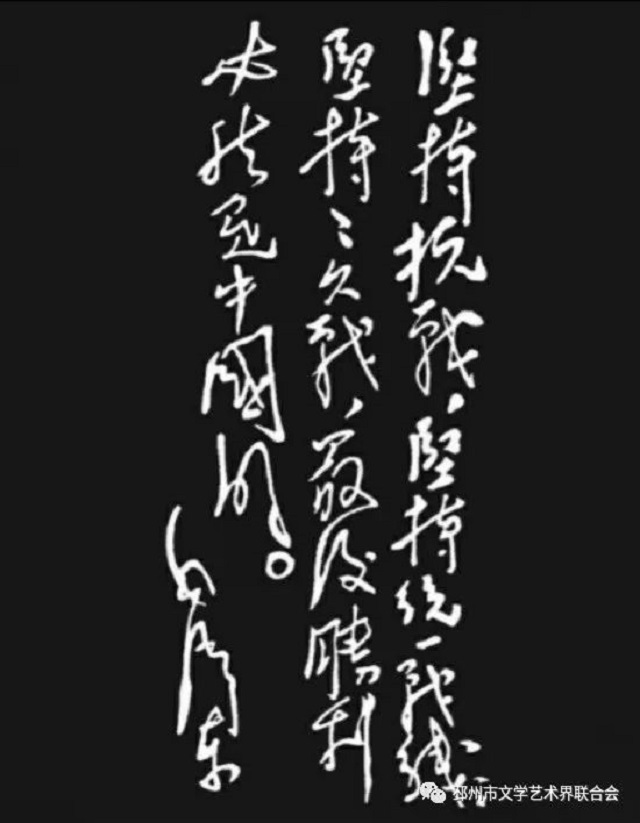 堅持抗戰、堅持統一戰線、
堅持〻久戰、最後勝利
必然是中國的。
毛澤東
邳州市文学艺术界联合会